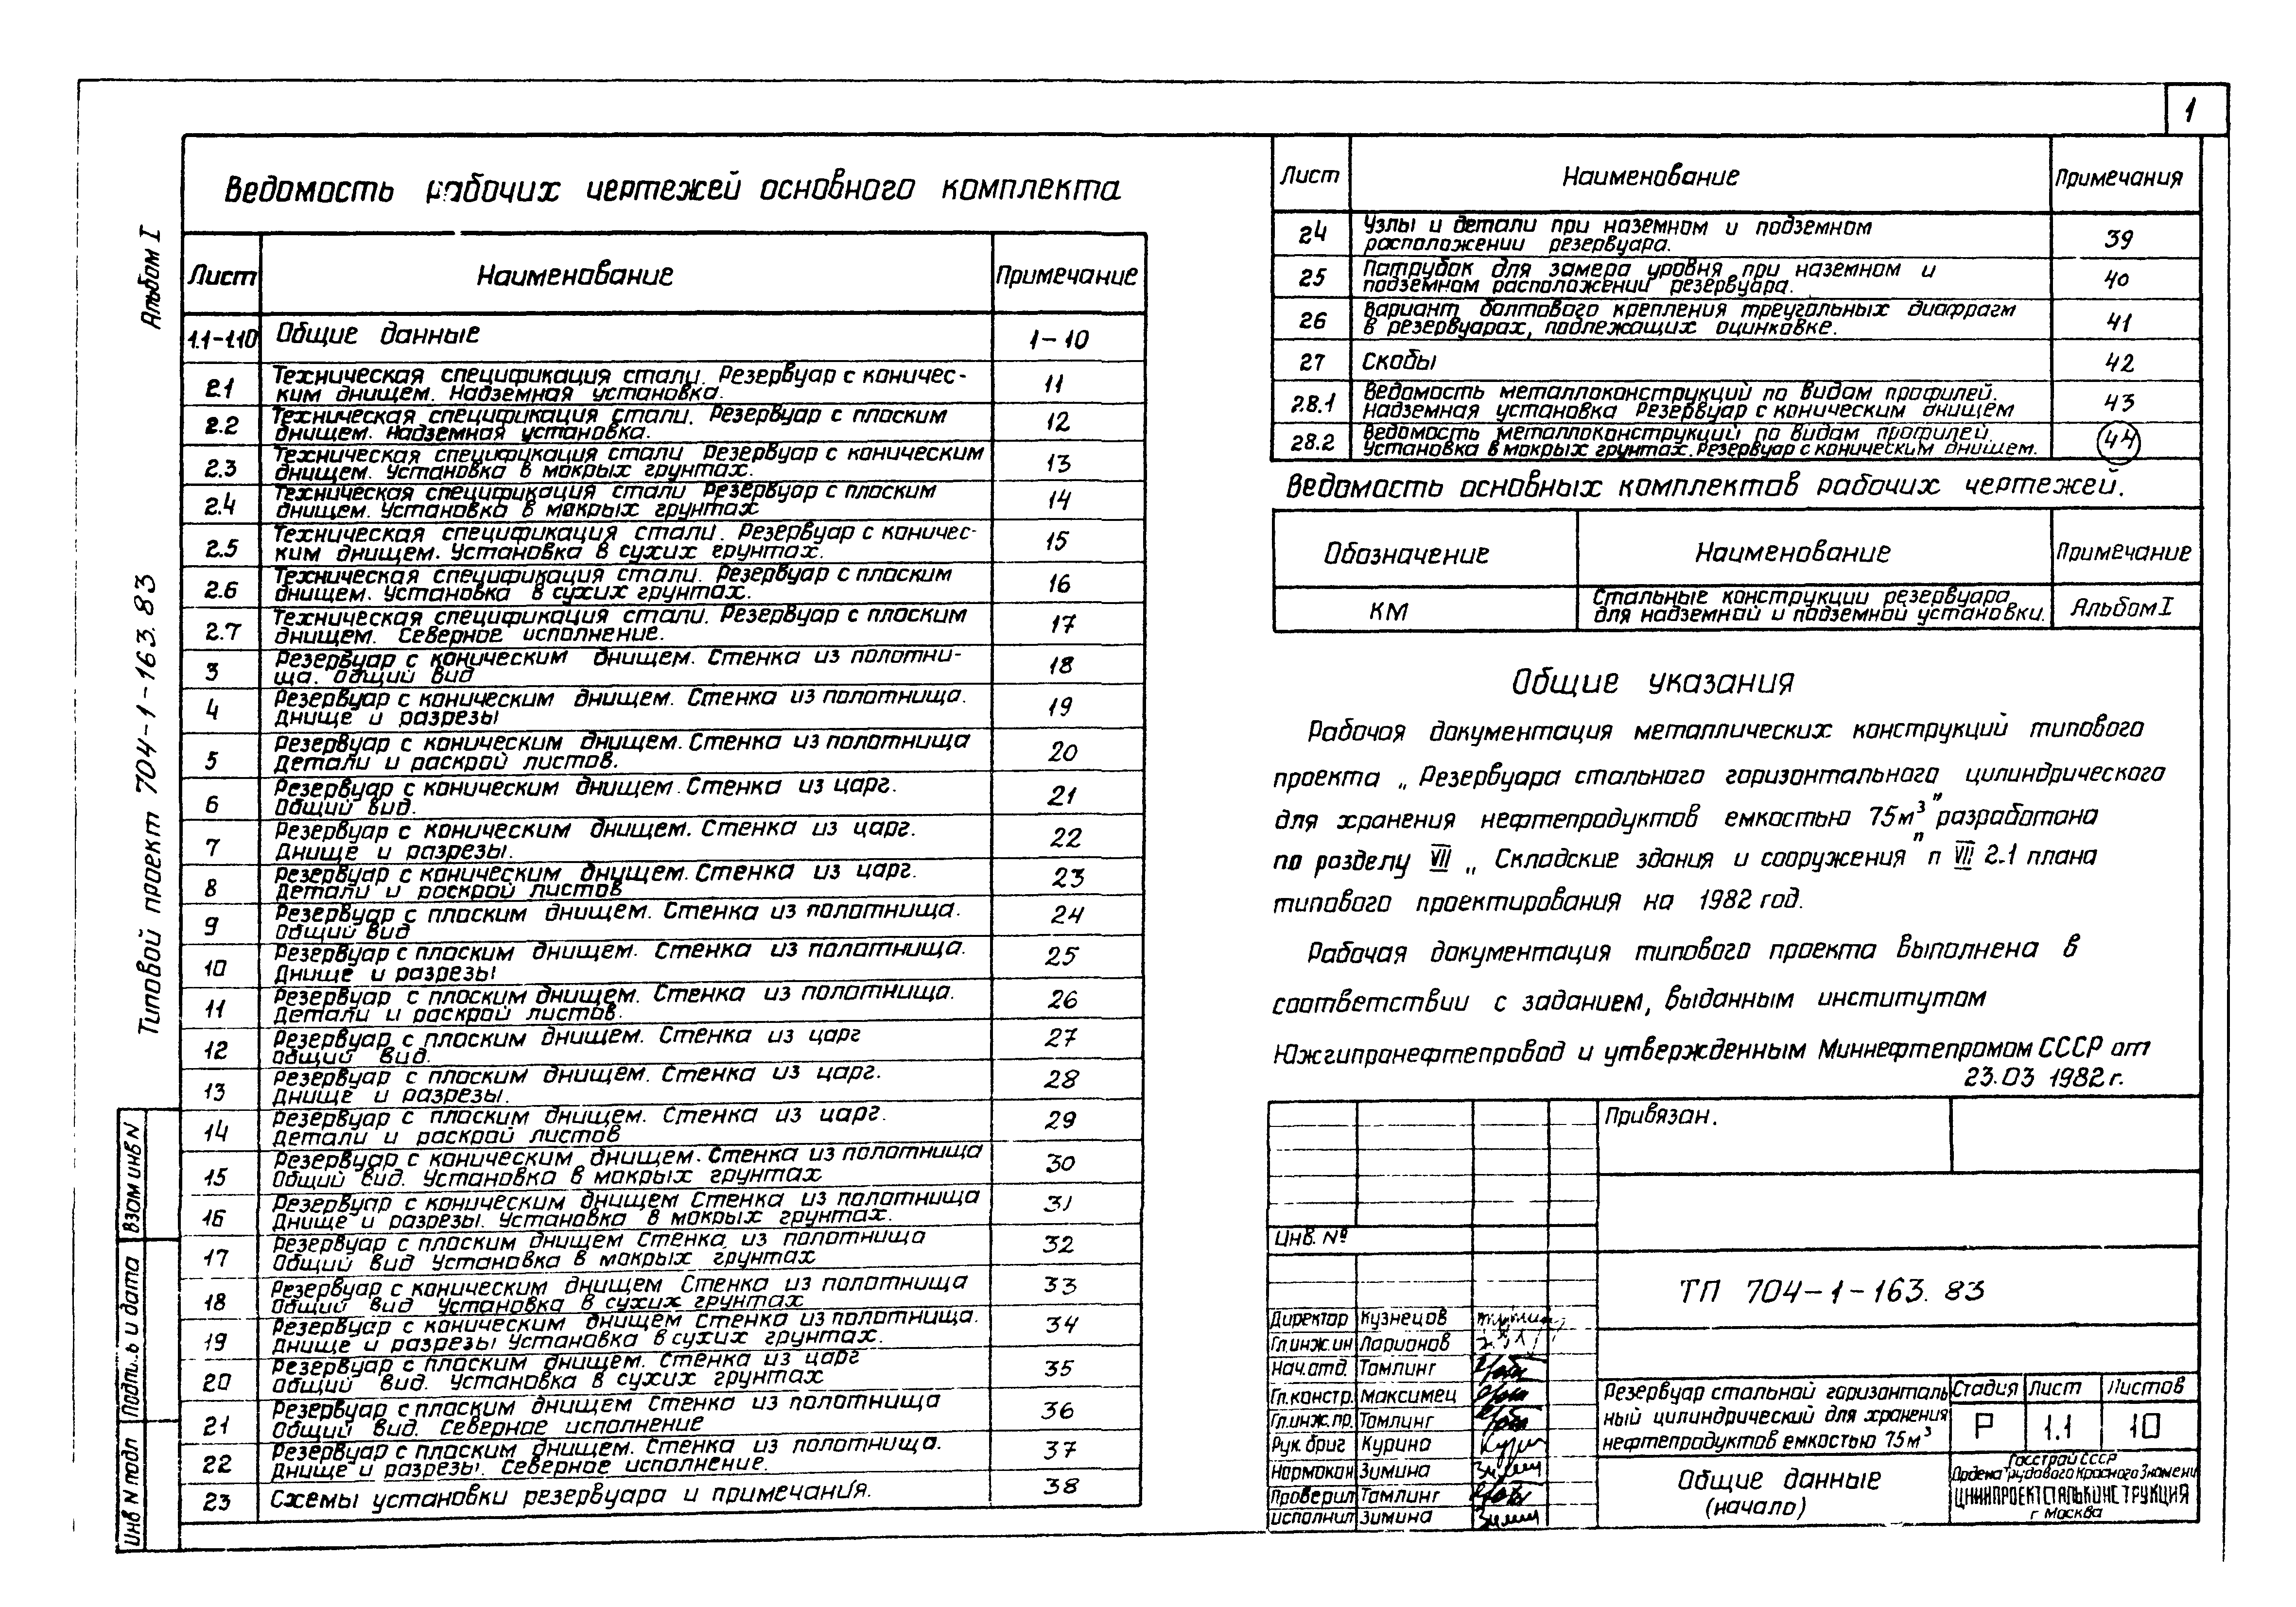 1
Альбом I
Типовой проект 704-1-163.83
Взам инв N
Подпись и дата
Инв N подл
Ведомость рабочих чертежей основного комплекта
Лист Наименование Примечание
1.1-1.10 Общие данные 1-10
2.1 Техническая спецификация стали. Резервуар с коничес-
ким днищем. Надземная установка. 11
2.2 Техническая спецификация стали. Резервуар с плоским
днищем. Надземная установка. 12
2.3 Техническая спецификация стали Резервуар с коническим
днищем. Установка в мокрых грунтах. 13
2.4 Техническая спецификация стали Резервуар с плоским
днищем. Установка в мокрых грунтах 14
2.5 Техническая спецификация стали. Резервуар с коничес-
ким днищем. Установка в сухих грунтах. 15
2.6 Техническая спецификация стали. Резервуар с плоским
днищем. Установка в сухих грунтах. 16
2.7 Техническая спецификация стали. Резервуар с плоским
днищем. Северное исполнение. 17
3 Резервуар с коническим днищем. Стенка из полотни-
ща. Общий вид 18
4 Резервуар с коническим днищем. Стенка из полотнища.
Днище и разрезы 19
5 Резервуар с коническим днищем. Стенка из полотнища
Детали и раскрой листов. 20
6 Резервуар с коническим днищем. Стенка из царг.
Общий вид. 21
7 Резервуар с коническим днищем. Стенка из царг.
Днище и разрезы. 22
8 Резервуар с коническим днищем. Стенка из царг.
Детали и раскрой листов 23
9 Резервуар с плоским днищем. Стенка из полотнища.
Общий вид 24
10 Резервуар с плоским днищем. Стенка из полотнища.
Днище и разрезы 25
11 Резервуар с плоским днищем. Стенка из полотнища.
Детали и раскрой листов. 26
12 Резервуар с плоским днищем. Стенка из царг
общий вид. 27
13 Резервуар с плоским днищем. Стенка из царг.
Днище и разрезы. 28
14 Резервуар с плоским днищем. Стенка из царг.
Детали и раскрой листов 29
15 Резервуар с коническим днищем. Стенка из полотнища
Общий вид. Установка в мокрых грунтах 30
16 Резервуар с коническим днищем Стенка из полотнища
Днище и разрезы. Установка в мокрых грунтах. 31
17 Резервуар с плоским днищем Стенка из полотнища
Общий вид Установка в мокрых грунтах 32
18 Резервуар с коническим днищем Стенка из полотнища
Общий вид Установка в сухих грунтах 33
19 Резервуар с коническим днищем Стенка из полотнища.
Днище и разрезы Установка в сухих грунтах. 34
20 Резервуар с плоским днищем. Стенка из царг
общий вид. Установка в сухих грунтах 35
21 Резервуар с плоским днищем Стенка из полотнища
Общий вид. Северное исполнение 36
22 Резервуар с плоским днищем. Стенка из полотнища.
Днище и разрезы. Северное исполнение. 37
23 Схемы установки резервуара и примечания. 38
Лист Наименование Примечания
24 Узлы и детали при наземном и подземном
расположении резервуара. 39
25 Патрубок для замера уровня при наземном и
подземном расположении резервуара. 40
26 Вариант болтового крепления треугольных диафрагм
в резервуарах, подлежащих оцинковке. 41
27 Скобы 42
28.1 Ведомость металлоконструкций по видам профилей.
Надземная установка Резервуар с коническим днищем 43
28.2 Ведомость металлоконструкций по видам профилей.
Установка в мокрых грунтах. Резервуар с коническим днищем. 44
Ведомость основных комплектов рабочих чертежей.
Обозначение Наименование Примечание
КМ Стальные конструкции резервуара
для надземной и подземной установки. Альбом I
Общие указания
Рабочая документация металлических конструкций типового
проекта „Резервуара стального горизонтального цилиндрического
для хранения нефтепродуктов емкостью 75м³" разработана
по разделу VII „Складские здания и сооружения" п VII 2.1 плана
типового проектирования на 1982 год.
Рабочая документация типового проекта выполнена в
соответствии с заданием, выданным институтом
Южгипронефтепровод и утвержденным Миннефтепромом СССР от
23.03 1982 г.
Привязан.
Инв. №
ТП 704-1-163.83
Директор Кузнецов
Гл.инж.ин Ларионов
Нач.отд. Томлинг
Гл.констр. Максимец
Гл.инж.пр. Томлинг
Рук. бриг Курина
Нормокон Зимина
Проверил Томлинг
исполнил Зимина
Резервуар стальной горизонталь
ный цилиндрический для хранения
нефтепродуктов емкостью 75м³
Стадия Лист Листов
Р 1.1 10
Общие данные
(начало)
Госстрой СССР
Ордена Трудового Красного Знамени
ЦНИИПРОЕКТСТАЛЬКОНСТРУКЦИЯ
г Москва